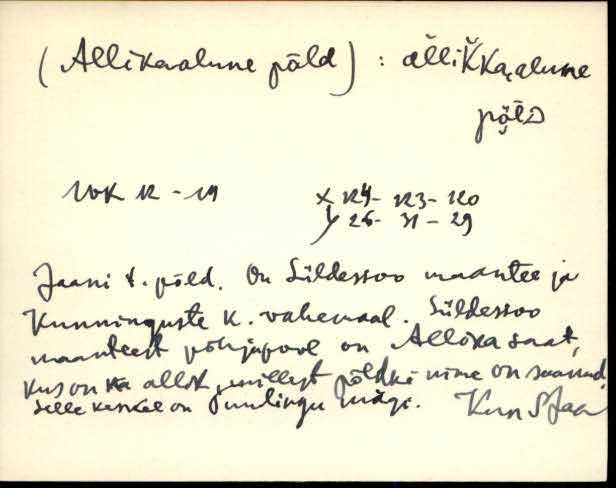 (Allikaalune põld) : älliKKa,alune
põlD
X 124- 123- 120
y 26- 31 - 29
Jaani t. põld. On Süldessoo maantee ja
Kunninguste k. vahemaal. Süldessoo
maanteest põhjapool on Allika saat,
kus on ka allik, millest põldki nime on saanud,
selle keskel on mägi. Kun